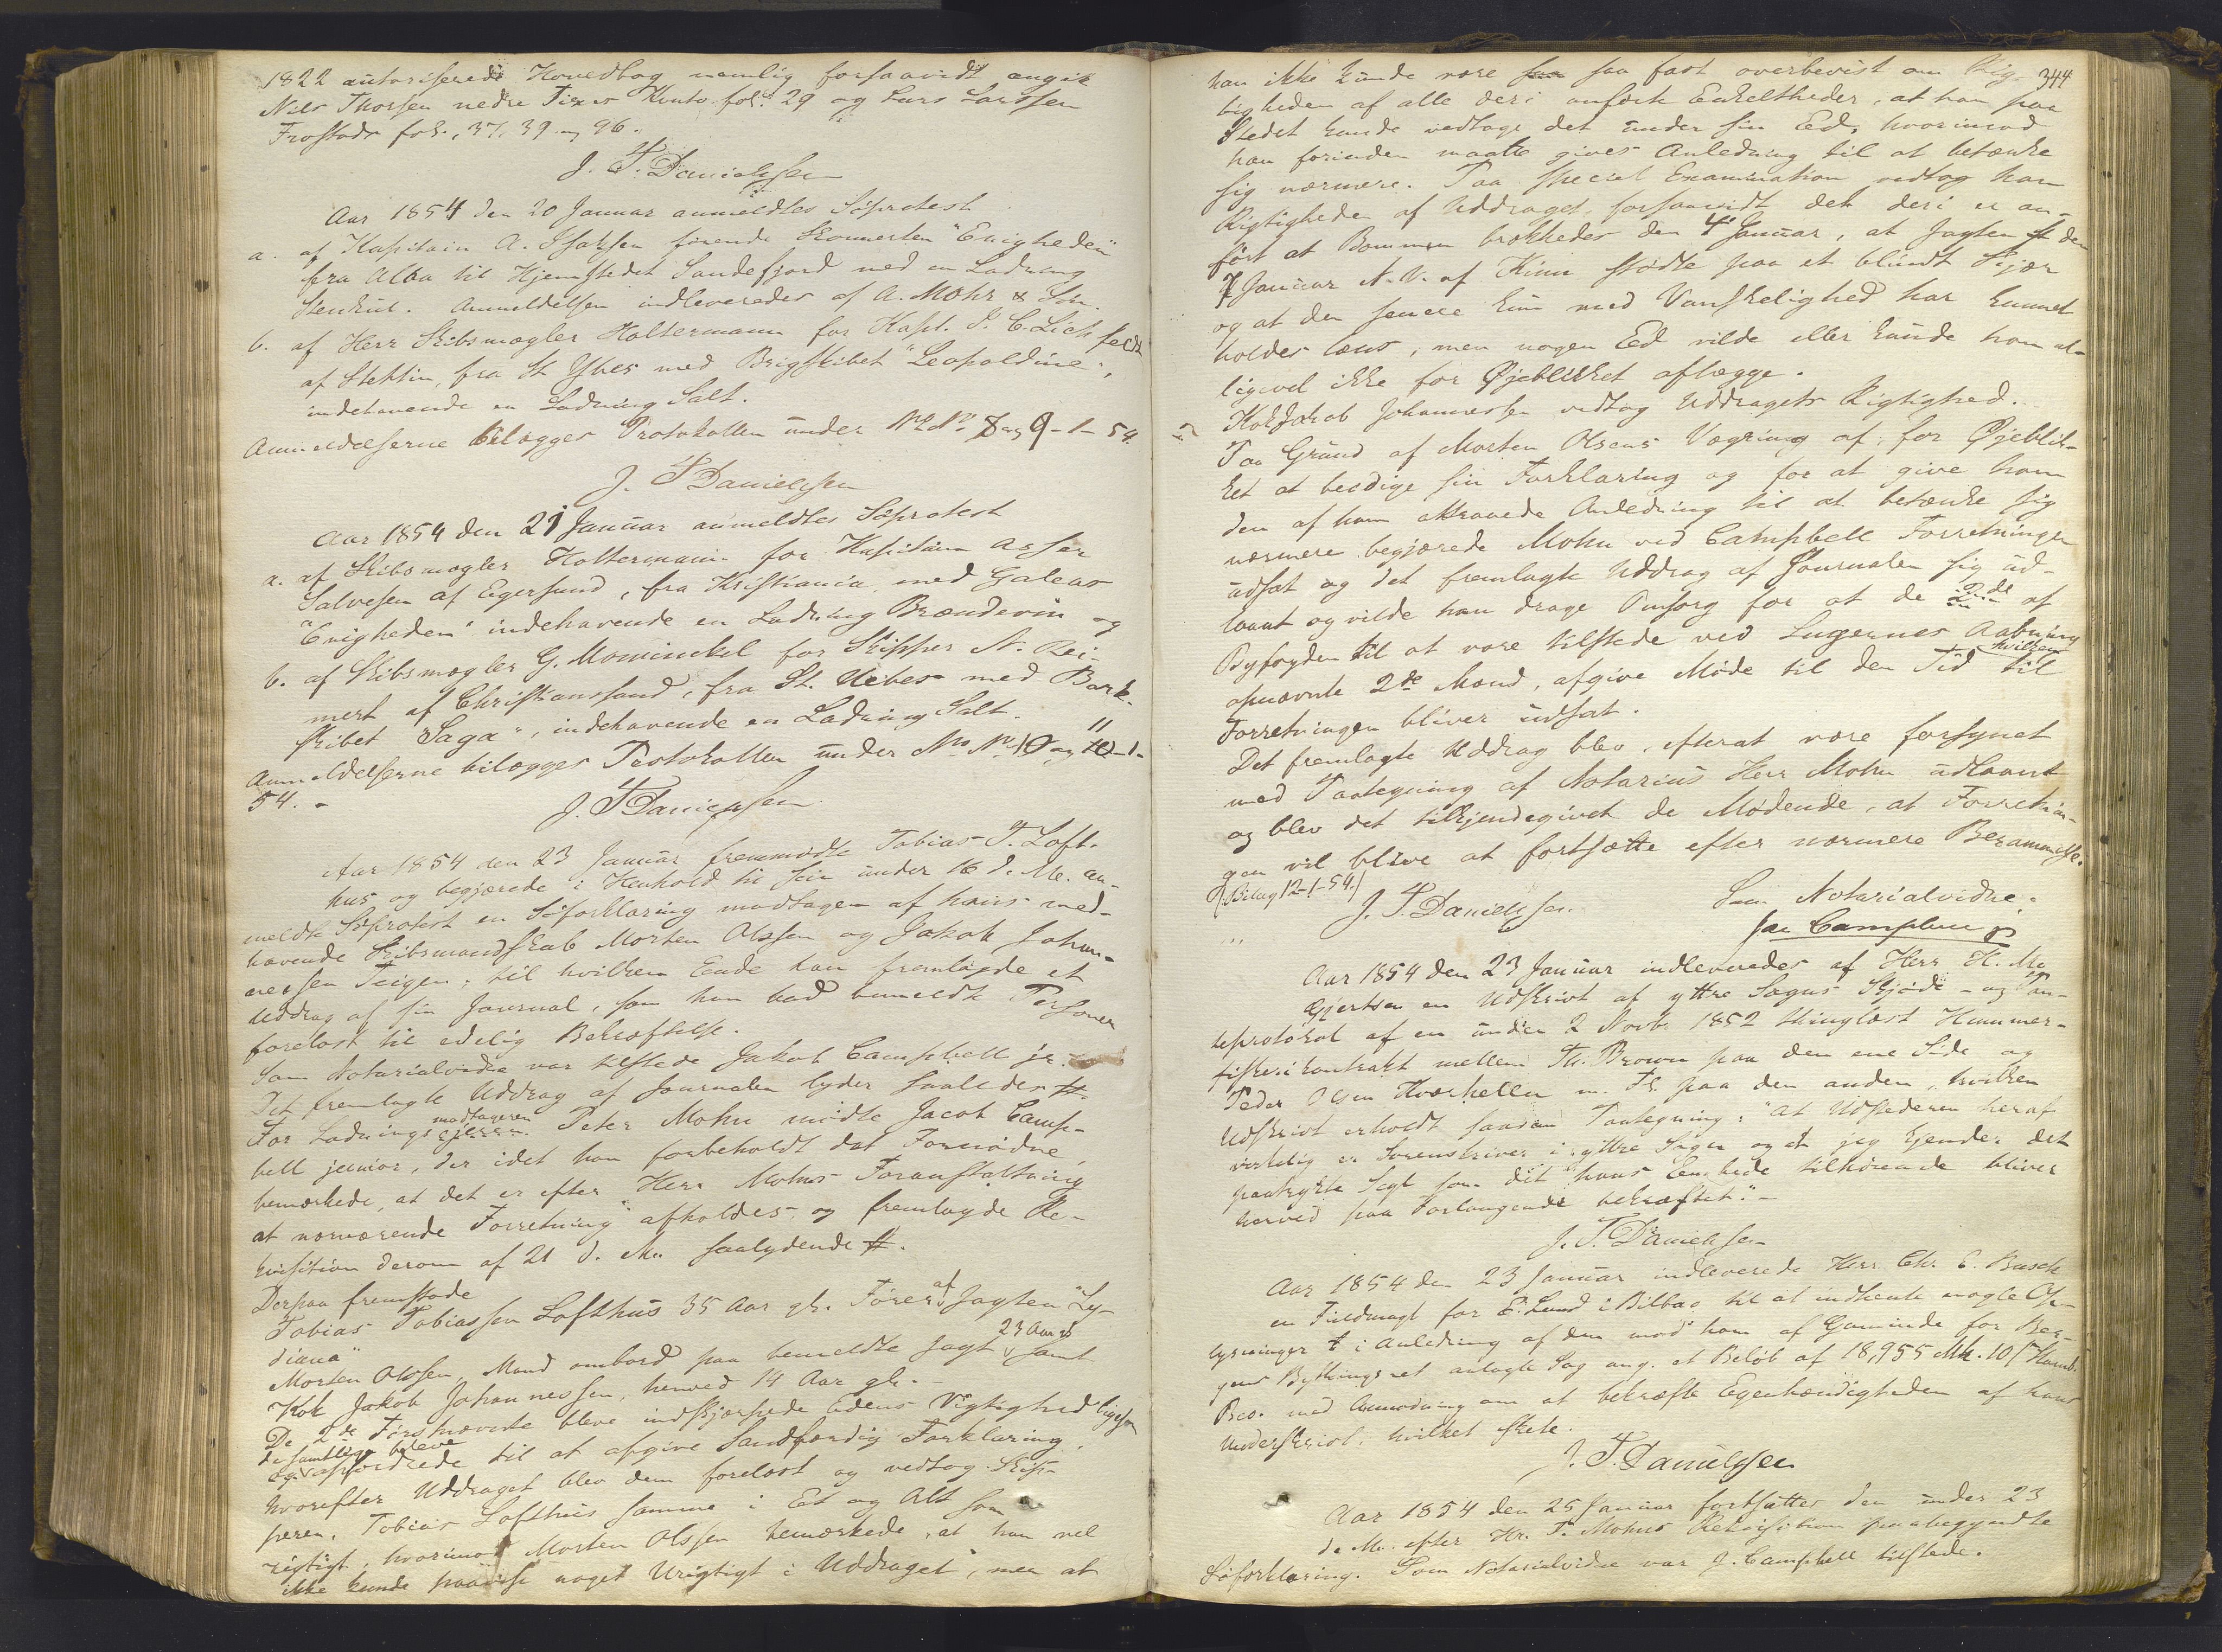 1822 autoriserede Hovedbog nemlig forsaavidt angik
Nils Thorsen nedre Conto fol: 29 og Lars Larssen
Frostads fol., 37, 39 og 96.
J. F. Danielssen
Aar 1854 den 20 Januar anmeldtes Söprotest
a. af Kapitain A. Isaksen förende Skonnerten "Enigheden"
fra Alloa til Hjemstedet Sandefjord med en Ladning
Stenkul. Anmeldelsen indleveredes af A. Mohr & Sön.
b. af Herr Skibsmægler Holtermann for Kapt. J. C. Lichtfeldt
af Stettin, fra St Ybes med Brigskibet "Leopoldine",
indehavende en Ladning Salt.
Anmeldelserne bilægges Protokollen under No No 8 og 9-1-54.
J. F Danielssen
Aar 1854 den 21 Januar anmeldtes Söprotest
a. af Skibsmægler Holtermann for Kapitain Asser
Salvesen af Egersund, fra Kristiania med Galeas
"Enigheden" indehavende en Ladning Brændevin og
b. af Skibsmægler G. Mowinckel for Skipper N. Rei-
mert af Christianssand, fra St. Uebes med Bark-
skibet "Saga", indehavende en Ladning Salt.
Anmeldelserne bilægges Protokollen under No No 10 og 11-1-
54. -
J. F Danielssen
Aar 1854 den 23 Januar fremmödte Tobias T. Loft-
hus og begjærede i Henhold til sin under 16 d. M. an-
meldte Söprotest en Söforklaring modtagen af hans med-
havende Skibsmandskab Morten Olssen og Jakob Johan-
nessen Teigen; til hvilken Ende han fremlagde et
Uddrag af sin Journal, som han bad bemeldte Personer
forelæst til edelig Bekræftelse.
Som Notarialvidne var tilstede Jakob Campbell jr.
Det fremlagte Uddrag af Journalen lyder saaledes #.
For Ladningsmodtageren Peter Mohn mödte Jacob Camp-
bell junior, der idet han forbeholdt det Fornödne,
bemærkede, at det er efter Herr Mohns Foranstaltning
at nærværende Forretning afholdes og fremlagde Re-
kvisition derom af 21 d. M. saalydende #.
Derpaa fremstode
Tobias Tobiassen Lofthus 35 Aar gl. Förer af Jagten "Ly-
diana"
Morten Olssen, Mand ombord paa bemeldte Jagt 23 Aar gl samt
Kok Jakob Johannessen, henved 14 Aar gl. -
De 2de Förstnævnte bleve indskjærpede Edens Vigtighed ligesom
de samtlige bleve opfordrede til at afgive Sandfærdig Forklaring,
hvorefter Uddraget blev dem forelæst og vedtog Skip-
peren, Tobias Lofthus samme i Et og Alt som
rigtigt, hvorimod Morten Olssen bemærkede, at han vel
ikke kunde paavise noget Urigtigt i Uddraget, men at
344
han ikke kunde være saa fast overbevist om Rig-
tigheden af alle deri anförte Enkeltheder, at han paa
Stedet kunde vedtage det under sin Ed, hvorimod
han forinden maatte gives Anledning til at betænke
sig nærmere. Paa speciel Examination vedtog han
Rigtigheden af Uddraget, forsaavidt det deri er an-
fört at Bommen brækkedes den 4 Januar, at Jagten den
7 Januar N.V. af Kinn stödte paa et blindt Skjær
og at den senere kun med Vanskelighed har kunnet
holdes læns, men nogen Ed vilde eller kunde han al-
ligevel ikke for Øjeblikket aflægge.
Kok Jakob Johannessen vedtog Uddragets Rigtighed.
Paa Grund af Morten Olsens Vægring af for Øjeblik-
ket at beedige sin Forklaring og for at give ham
den af ham attraaede Anledning til at betænke sig
nærmere begjærede Mohn ved Campbell Forretningen
udsat og det fremlagte Uddrag af Journalen sig ud-
laant og vilde han drage Omsorg for at de 2de af
Byfogden til at være tilstede ved Lugernes Aabning
opnævnte 2de Mænd, afgive Möde til den Tid til hvilken
Forretningen bliver udsat.
Det fremlagte Uddrag blev, efterat være forsynet
med Paategning af Notarius Herr Mohn udlaant
og blev det tilkjendegivet de Mödende, at Forretnin-
gen vil blive at fortsætte efter nærmere Berammelse.
(Bilag 12-1-54.)
J. F. Danielssen.
Som Notarialvidne:
Jac Campbell jr
Aar 1854 den 23 Januar indleveredes af Herr H. M.
Gjertsen en Udskrivt af yttre Sogns Skjöde- og Pan-
teprotokol af en under 2 Novb. 1852 thinglæst Hummer-
fiskerikontrakt mellem Th. Brown paa den ene Side og
Peder Olsen Kværhellen m. Fl. paa den anden, hvilken
Udskrivt erholdt saadan Paategning: "At Udstederen heraf
virkelig er Sorenskriver i yttre Sogn og at jeg kjender det
paatrykte Segl som det hans Embede tilhörende bliver
herved paa Forlangende bekræftet." -
J. F. Danielssen
Aar 1854 den 23 Januar indleverede Herr Chr. E. Busch
en Fuldmagt for E. Lund i Bilbao til at indhente nogle Op-
lysninger i Anledning af den mod ham af Gaminde for Ber-
gens Bythingsret anlagte Sag ang. et Belöb af 18,955 Mk. 10 / Hamb.
Bco. med Anmodning om at bekræfte Egenhændigheden af hans
Underskrivt, hvilket skete.
J. F. Danielssen
Aar 1854 den 25 Januar fortsattes den under 23
d. M. efter Hr. P. Mohns Rekvisition paabegyndte
Söforklaring. Som Notarialvidne var J. Campbell tilstede.